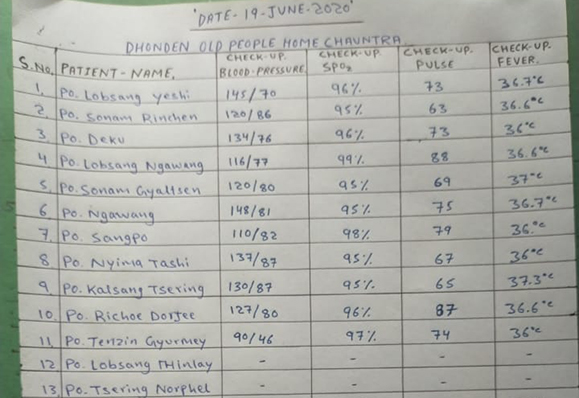 'DATE - 19 - JUNE - 2020'
DHONDEN OLD PEOPLE HOME CHAUNTRA
S.No. PATIENT - NAME. CHECK-UP. BLOOD-PRESSURE. CHECK-UP. SPO2 CHECK-UP. PULSE CHECK-UP. FEVER.
1. Po. Lobsang yeshi 145/70 96% 73 36.7°c
2. Po. Sonam Rinchen 120/86 95% 63 36.6°c
3 Po. Deku 134/76 96% 73 36°c
4 Po. Lobsang Ngawang 116/77 99% 88 36.6°c
5. Po. Sonam Gyaltsen 120/80 95% 69 37°c
6 Po. Ngawang 148/81 95% 75 36.7°c
7. Po. Sangpo 110/82 98% 79 36.°c
8 Po. Nyima Tashi 137/87 95% 67 36°c
9. Po. Kalsang Tsering 130/87 95% 65 37.3°c
10. Po. Richoe Dorjee 127/80 96% 87 36.6°c
11. Po. Tenzin Gyurmey 90/46 97% 74 36°c
12 Po. Lobsang THinlay - - - -
13 Po. Tsering Norphel - - - -